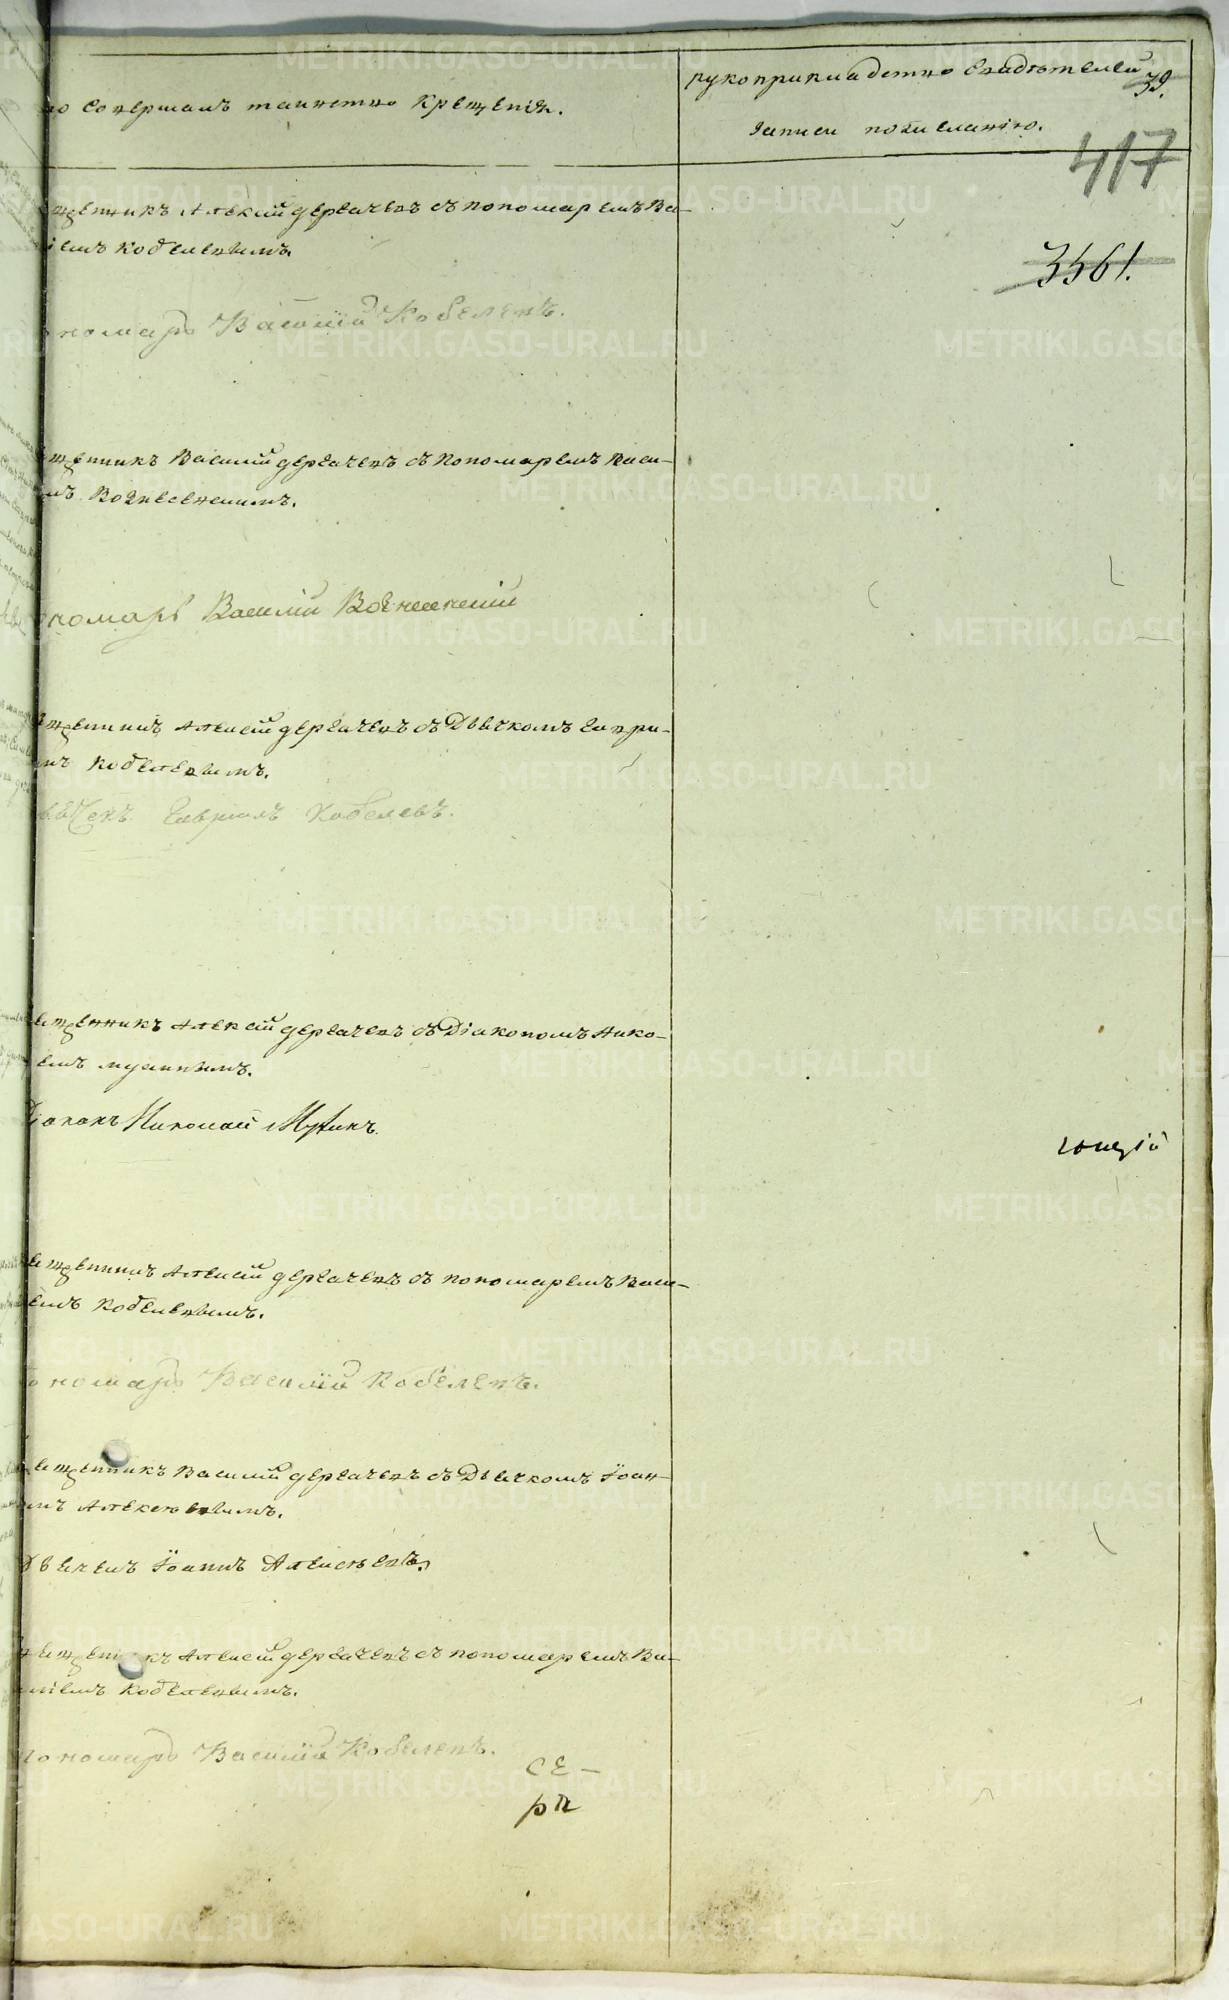 то совершалъ таинство Крещенія.
рукоприкладство свидѣтелей
записи по желанію.
39.
417
3561.
щенникъ Алексій Дергачевъ съ пономаремъ Ва-
іемъ Кобелевымъ.
ономарь Василій Кобелевъ.
щенникъ Василій Дергачевъ съ пономаремъ Васи-
мъ Вознесенскимъ.
ономарь Василій Вознесенскій
щенникъ Алексій Дергачевъ съ Дьячкомъ Гаври-
мъ Кобелевымъ.
ьячекъ Гавріилъ Кобелевъ.
щенникъ Алексій Дергачевъ съ Діакономъ Нико-
емъ
Діаконъ Николай
щенникъ Алексій Дергачевъ съ пономаремъ Васи-
емъ Кобелевымъ.
ономарь Василій Кобелевъ.
щенникъ Василій Дергачевъ съ Дьячкомъ Іоан-
мъ Алексѣевымъ.
Дьячекъ Іоаннъ Алексѣевъ.
щенникъ Алексій Дергачевъ съ пономаремъ Ва-
иліемъ Кобелевымъ.
пономарь Василій Кобелевъ.
се-
рп
METRIKI.GASO-URAL.RU